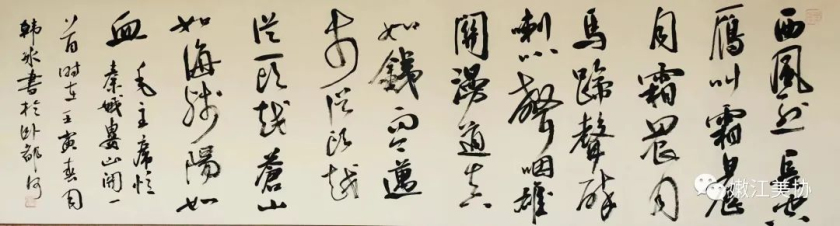 西風烈長空
雁叫霜晨
月霜晨月
馬蹄聲碎
喇叭聲咽雄
關漫道真
如鐵而今邁
步從頭越
從頭越蒼山
如海殘陽如
血
毛主席憶
秦娥婁山關一
首時在壬寅春月
韩冰書於卧都河
嫩江美协